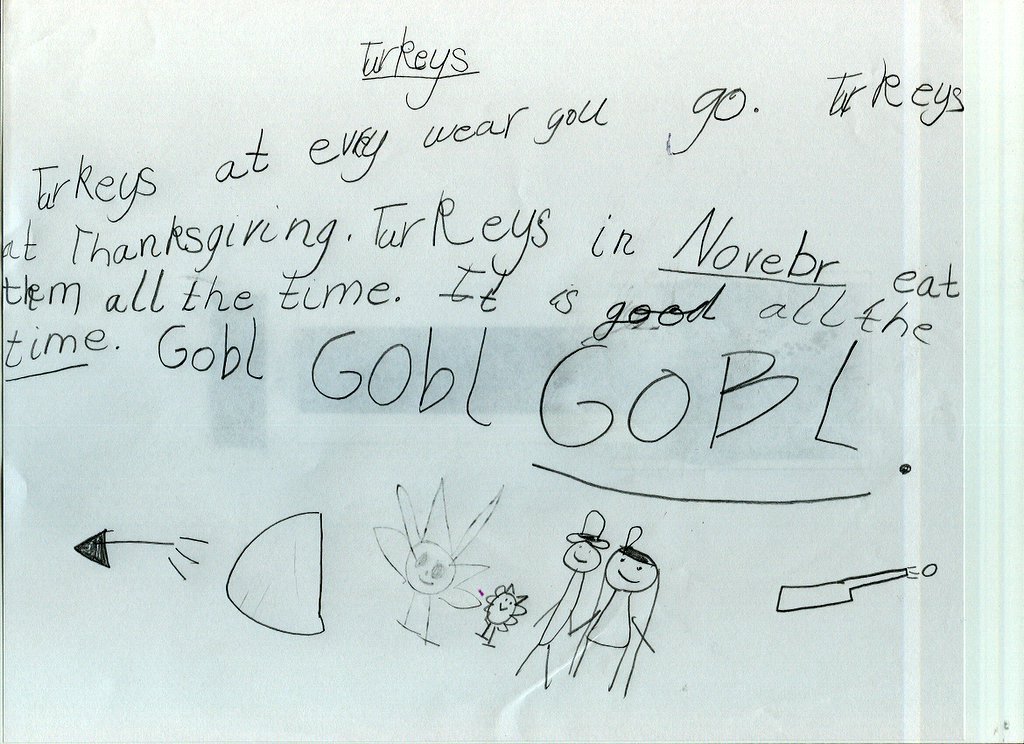 Turkeys
Turkeys at evry wear you go. Turkeys
at Thanksgiving. Turkeys in Novebr eat
them all the time. It is good all the
time. Gobl GObl GOBL.